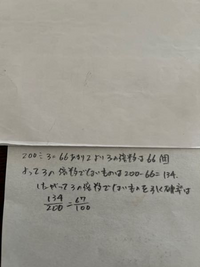 200÷3=66あまり2より3の倍数は66個
よって3の倍数でないものは200-66=134.
したがって3の倍数でないものを引く確率は
134/200=67/100